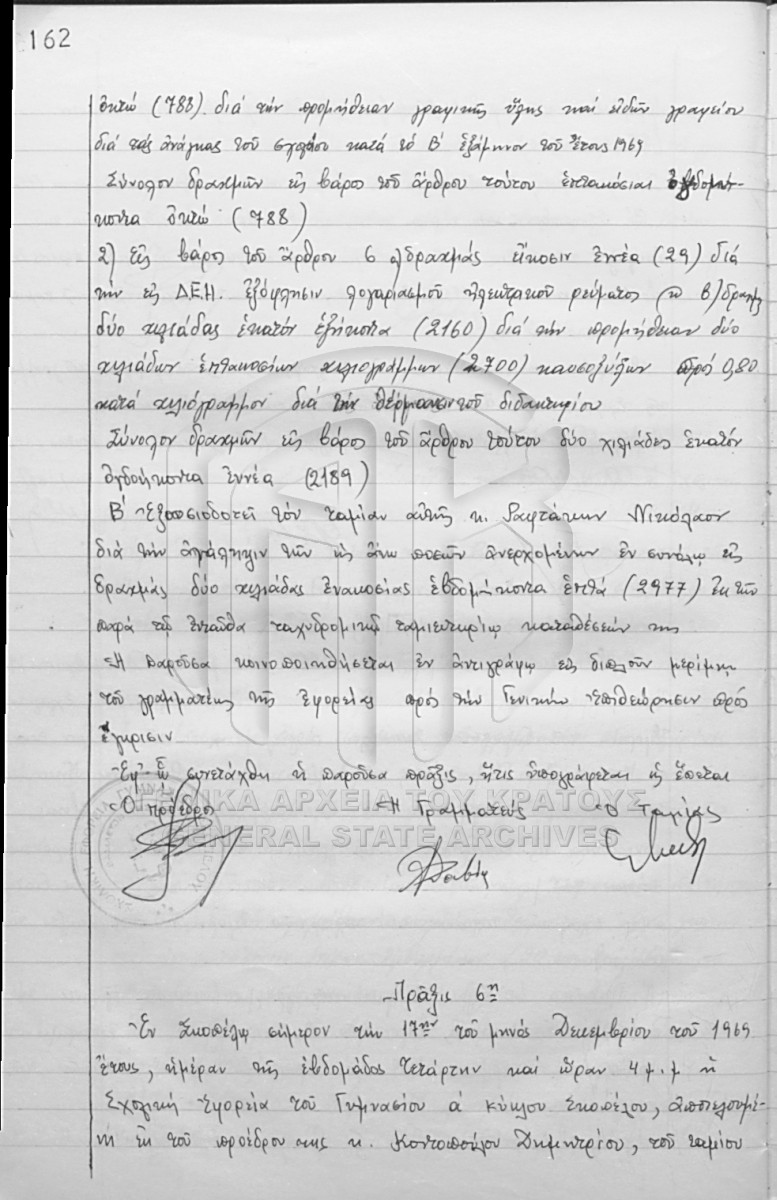 162
ὀκτώ (788) διά τήν προμήθειαν γραφικῆς ὕλης καί εἰδῶν γραφείου
διά τάς ἀνάγκας τοῦ σχολείου κατά τό Β' ἑξάμηνον τοῦ ἔτους 1969
Σύνολον δραχμῶν εἰς βάρος τοῦ ἄρθρου τούτου ἑπτακόσιαι ὀγδοήκοντα ὀκτώ (788)
2) Εἰς βάρος τοῦ ἄρθρου 6 α) δραχμάς εἴκοσιν ἐννέα (29) διά
τήν εἰς Δ.Ε.Η. ἐξόφλησιν λογαριασμοῦ ἠλεκτρικοῦ ρεύματος β) δραχμ.
δύο χιλιάδας ἑκατόν ἑξήκοντα (2160) διά τήν προμήθειαν δύο
χιλιάδων ἑπτακοσίων χιλιογράμμων (2700) καυσοξύλων πρός 0,80
κατά χιλιόγραμμον διά τήν θέρμανσιν τοῦ διδακτηρίου
Σύνολον δραχμῶν εἰς βάρος τοῦ ἄρθρου τούτου δύο χιλιάδες ἑκατόν
ὀγδοήκοντα ἐννέα (2189)
Β' Ἐξουσιοδοτεῖ τόν ταμίαν αὐτῆς κ. Ραφτάκην Νικόλαον
διά τήν ἀνάληψιν τῶν ὡς ἄνω ποσῶν ἀνερχομένων ἐν συνόλῳ εἰς
δραχμάς δύο χιλιάδας ἐνακοσίας ἑβδομήκοντα ἑπτά (2977) ἐκ τῶν
παρά τῷ ἐνταῦθα ταχυδρομικῷ ταμιευτηρίῳ καταθέσεών της
Ἡ παροῦσα κοινοποιηθήσεται ἐν ἀντιγράφῳ εἰς διπλοῦν μερίμνῃ
τοῦ γραμματέως τῆς Ἐφορείας πρός τήν Γενικήν Ἐπιθεώρησιν πρός
ἔγκρισιν
Ἐφ' ᾧ συνετάχθη ἡ παροῦσα πρᾶξις, ἥτις ὑπογράφεται ὡς ἕπεται
Ὁ πρόεδρος Ἡ Γραμματεύς Ὁ Ταμίας
ΓΕΝΙΚΑ ΑΡΧΕΙΑ ΤΟΥ ΚΡΑΤΟΥΣ
GENERAL STATE ARCHIVES
Πρᾶξις 6η
Ἐν Σκοπέλῳ σήμερον τήν 17ην τοῦ μηνός Δεκεμβρίου τοῦ 1969
ἔτους, ἡμέραν τῆς ἑβδομάδος Τετάρτην καί ὥραν 4 μ.μ ἡ
Σχολική Ἐφορεία τοῦ Γυμνασίου α' κύκλου Σκοπέλου, ἀποτελουμένη ἐκ τοῦ προέδρου της κ. Κοντοπούλου Δημητρίου, τοῦ ταμίου